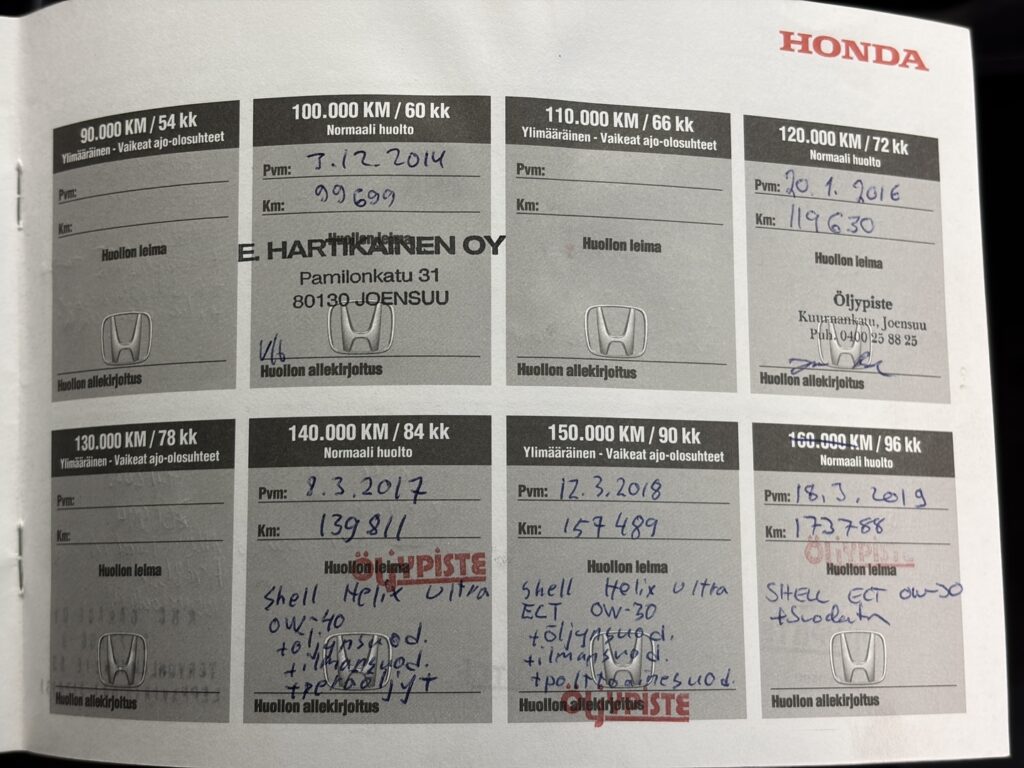 HONDA
90.000 KM / 54 kk
Ylimääräinen - Vaikeat ajo-olosuhteet
Pvm:
Km:
Huollon leima
Huollon allekirjoitus
100.000 KM / 60 kk
Normaali huolto
Pvm: 3.12.2014
Km: 99699
Huollon leima
E. HARTIKAINEN OY
Pamilonkatu 31
80130 JOENSUU
Huollon allekirjoitus
110.000 KM / 66 kk
Ylimääräinen - Vaikeat ajo-olosuhteet
Pvm:
Km:
Huollon leima
Huollon allekirjoitus
120.000 KM / 72 kk
Normaali huolto
Pvm: 20.1.2016
Km: 119630
Huollon leima
Öljypiste
Kuurnankatu, Joensuu
Puh. 0400 25 88 25
Huollon allekirjoitus
130.000 KM / 78 kk
Ylimääräinen - Vaikeat ajo-olosuhteet
Pvm:
Km:
Huollon leima
Huollon allekirjoitus
140.000 KM / 84 kk
Normaali huolto
Pvm: 8.3.2017
Km: 139811
Huollon leima
ÖLJYPISTE
Shell Helix Ultra
0W-40
+öljynsuod.
+ilmansuod.
+peräöljyt
Huollon allekirjoitus
150.000 KM / 90 kk
Ylimääräinen - Vaikeat ajo-olosuhteet
Pvm: 12.3.2018
Km: 157489
Huollon leima
Shell Helix Ultra
ECT 0W-30
+öljynsuod.
+ilmansuod.
+polttoainesuod.
Huollon allekirjoitus
ÖLJYPISTE
160.000 KM / 96 kk
Normaali huolto
Pvm: 18.3.2019
Km: 173788
ÖLJYPISTE
Huollon leima
SHELL ECT 0W-30
+Suodatin
Huollon allekirjoitus